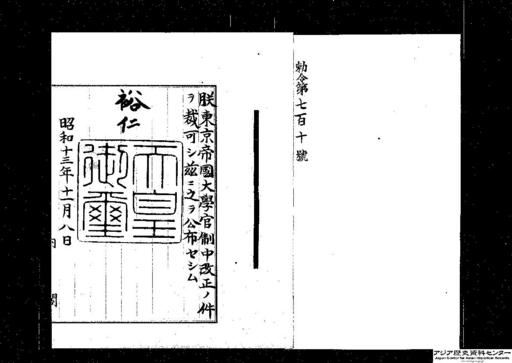 勅令第七百十號
朕東京帝國大學官制中改正ノ件
ヲ裁可シ茲ニ之ヲ公布セシム
裕仁
天皇御璽
昭和十三年十一月八日
内 閣
アジア歴史資料センター
Japan Center for Asian Historical Records